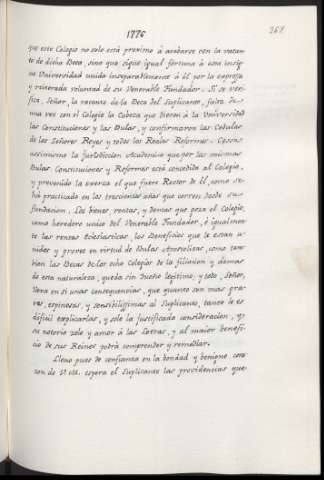 1776
268
que este Colegio no solo está proximo à acabarse con la vacan-
te de dicha Beca, sino que sigue igual fortuna à esta insig-
ne Universidad unida inseparablemente à él por la expresa
y reiterada voluntad de su Venerable Fundador. Si se veri-
fica, Señor, la vacante de la Beca del Suplicante, falta de
una vez con el Colegio la Cabeza que dieron à la Universidad
las Constituciones y las Bulas, y confirmaron las Cedulas
de los Señores Reyes y todas las Reales Reformas. Cesa
necesariamente la Jurisdiccion Academica que por las mismas
Bulas Constituciones y Reformas está concedida al Colegio,
y prevenido la exerza el que fuere Rector de él, como se há
practicado en los trescientos años que corren desde su
fundacion. Los bienes rentas, y demas que goza el Colegio,
como heredero unico del Venerable Fundador, è igualmen-
te las rentas Eclesiasticas, los Beneficios que le estan u-
nidos y provee en virtud de Bulas Apostolicas, como tam-
bien las Becas de los ocho Colegios de la filiacion y demas
de esta naturaleza, queda sin Dueño legitimo, y todo, Señor,
lleva en sí unas consequencias, que quanto son mas gra-
ves, espinosas, y sensibilisimas al Suplicante, tanto le es
dificil explicarlas, y solo la justificada consideracion, y
su notorio zelo y amor à las Letras, y al maior benefi-
cio de sus Reinos podrá comprender y remediar.
Lleno pues de confianza en la bondad y benigno cora-
zon de V. M. espera el Suplicante las providencias que